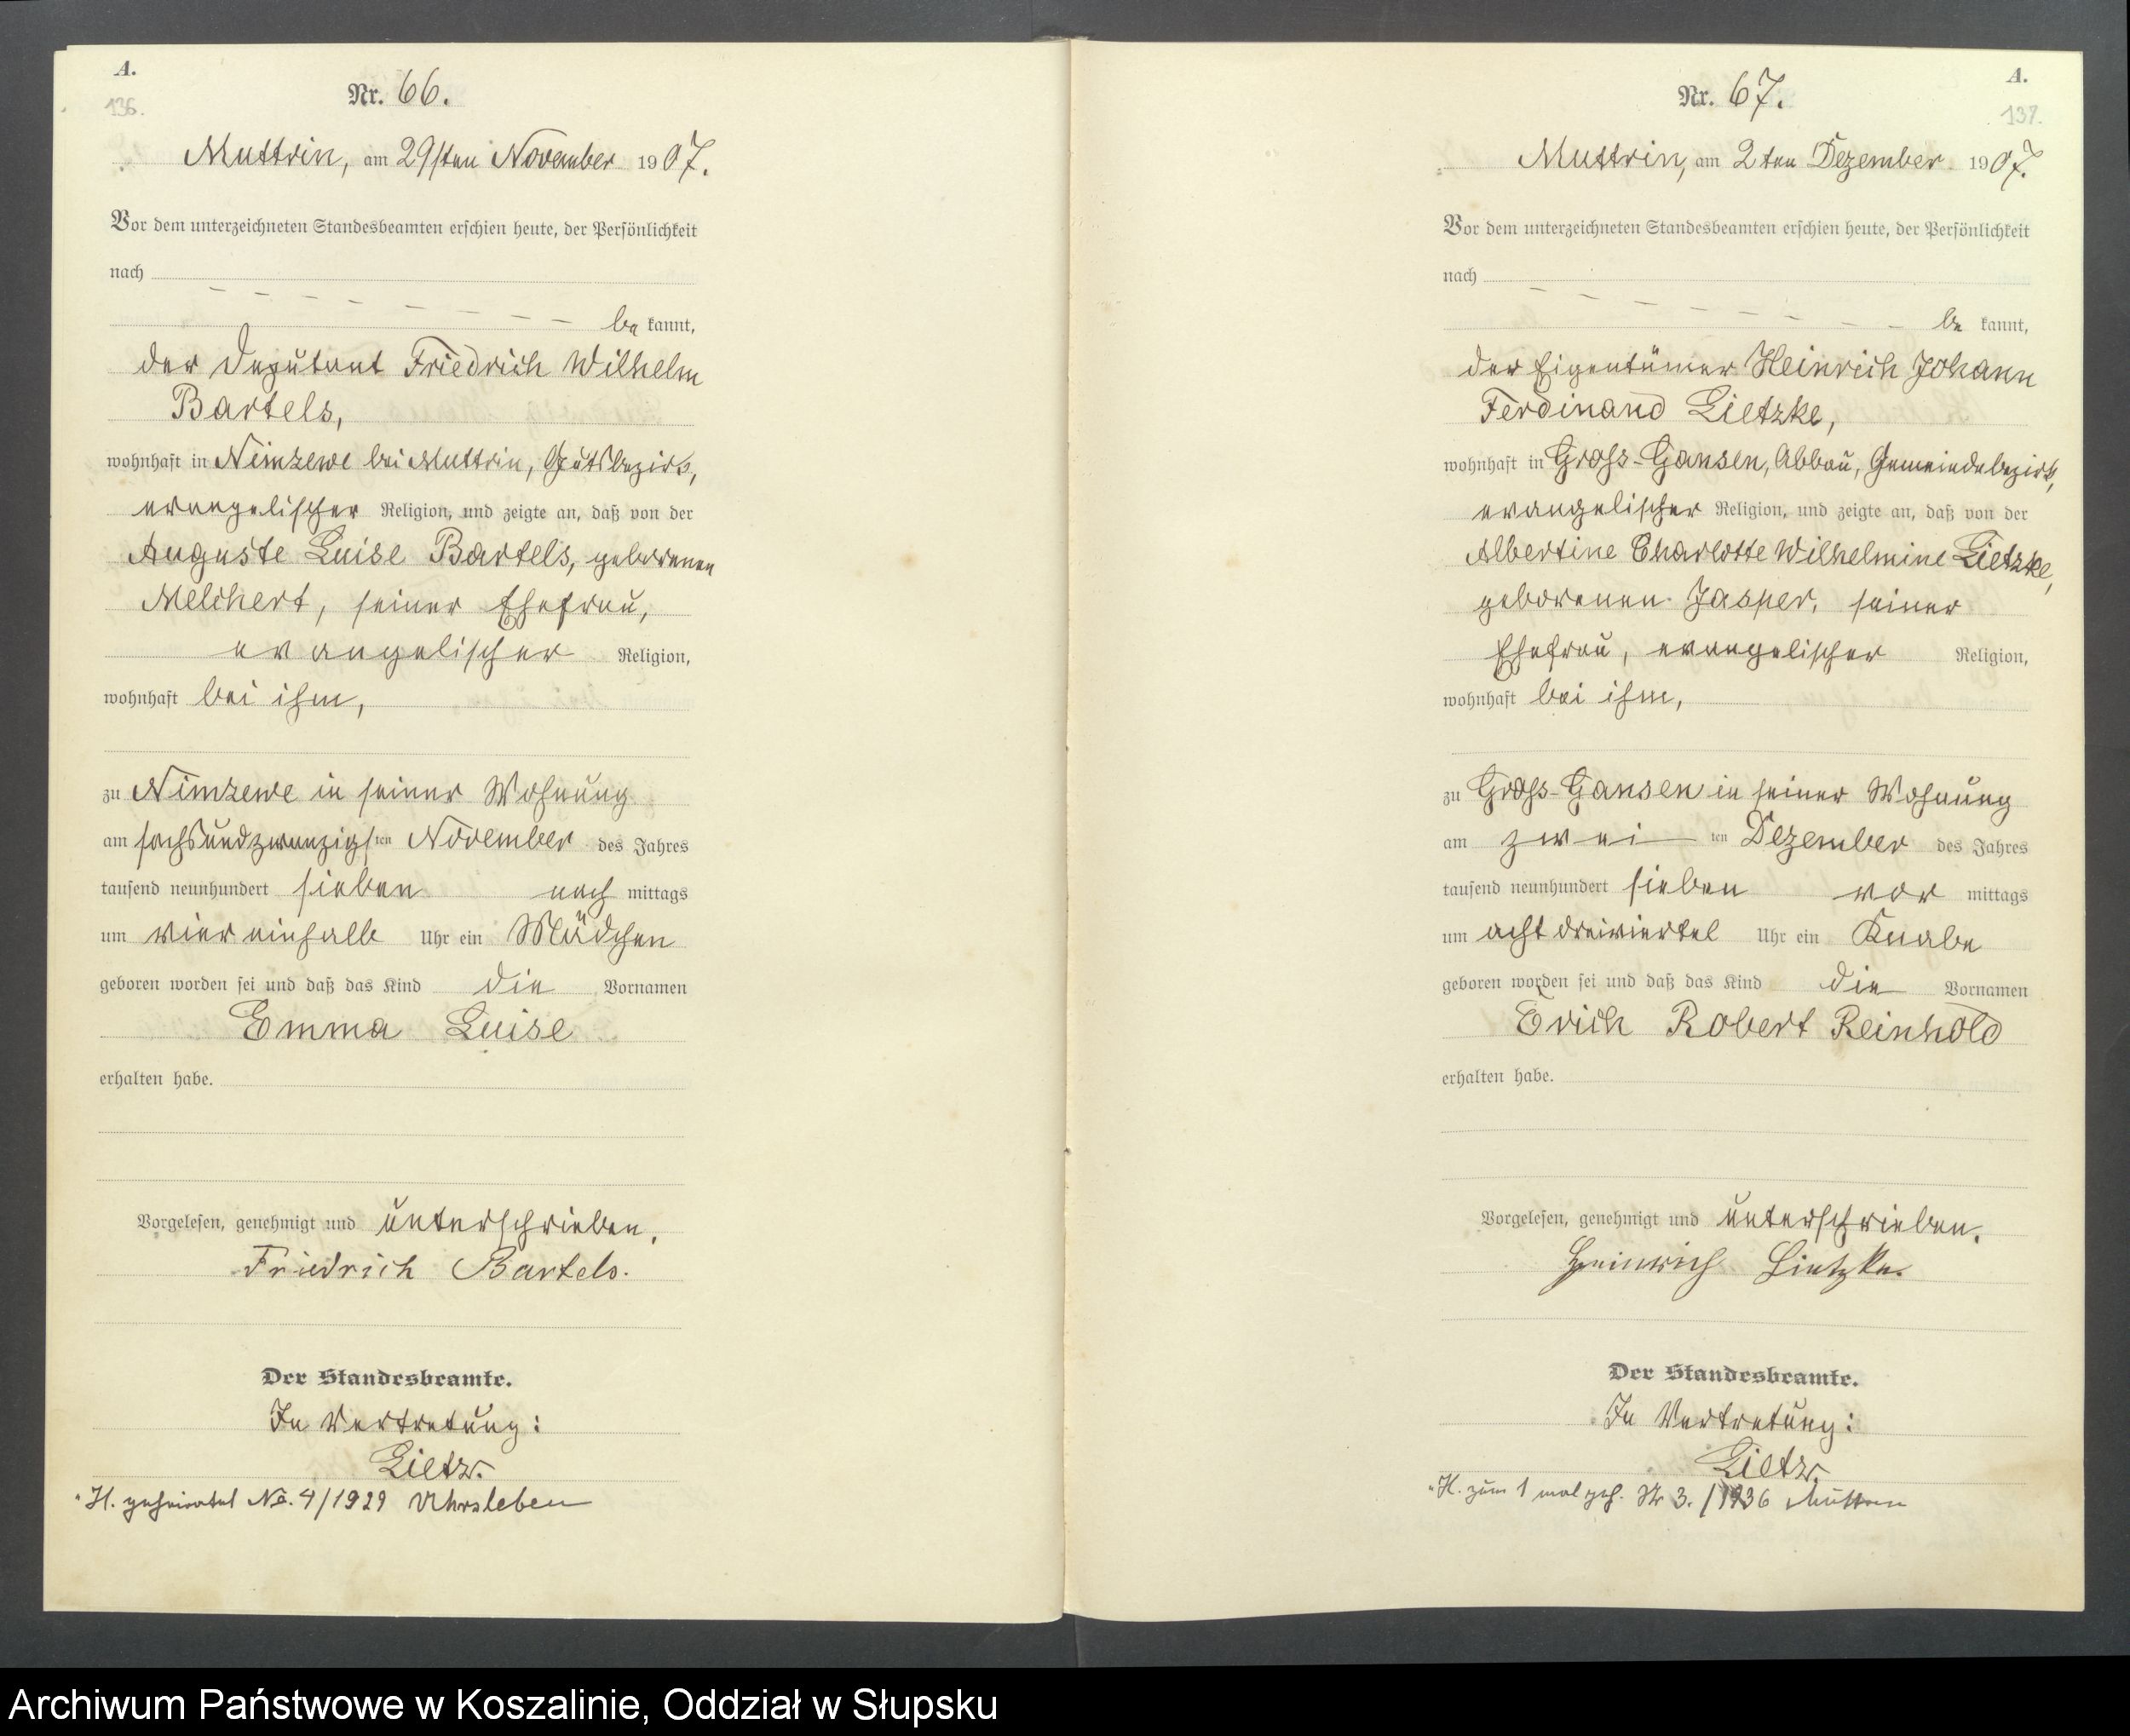 A.
136.
Nr. 66.
Muttrin, am 29sten November 1907.
Vor dem unterzeichneten Standesbeamten erschien heute, der Persönlichkeit
nach
be kannt,
der Deputant Friedrich Wilhelm
Bartels,
wohnhaft in Nimzewe bei Muttrin, Gutsbezirk,
evangelischer Religion, und zeigte an, daß von der
Auguste Luise Bartels, geborenen
Melchert, seiner Ehefrau,
evangelischer Religion,
wohnhaft bei ihm,
zu Nimzewe in seiner Wohnung
am sechsundzwanzigsten November des Jahres
tausend neunhundert sieben nach mittags
um vier einhalb Uhr ein Mädchen
geboren worden sei und daß das Kind die Vornamen
Emma Luise
erhalten habe.
Vorgelesen, genehmigt und unterschrieben.
Friedrich Bartels.
Der Standesbeamte.
In Vertretung:
Lietz.
H. geheiratet No. 4/1929 Uhrsleben
A.
137.
Nr. 67.
Muttrin, am 2ten Dezember 1907.
Vor dem unterzeichneten Standesbeamten erschien heute, der Persönlichkeit
nach
be kannt,
der Eigentümer Heinrich Johann
Ferdinand Lietzke,
wohnhaft in Gross-Gansen, Abbau, Gemeindebezirk,
evangelischer Religion, und zeigte an, daß von der
Albertine Charlotte Wilhelmine Lietzke,
geborenen Jasper, seiner
Ehefrau, evangelischer Religion,
wohnhaft bei ihm,
zu Gross-Gansen in seiner Wohnung
am zwei ten Dezember des Jahres
tausend neunhundert sieben vor mittags
um acht dreiviertel Uhr ein Knabe
geboren worden sei und daß das Kind die Vornamen
Erich Robert Reinhold
erhalten habe.
Vorgelesen, genehmigt und unterschrieben.
Heinrich Lietzke.
Der Standesbeamte.
In Vertretung:
Lietz.
H. zum 1 mal geh. Nr 3./1936 Muttrin
Archiwum Państwowe w Koszalinie, Oddział w Słupsku